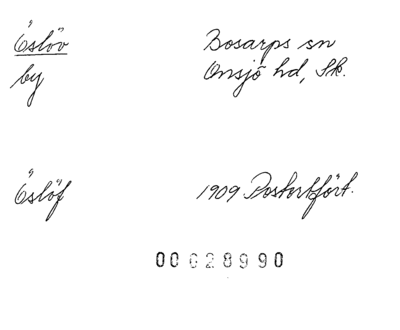 Öslöv Bosarps sn
by Onsjö hd, Sk.
Öslöf 1909 Postortfört.
00028990